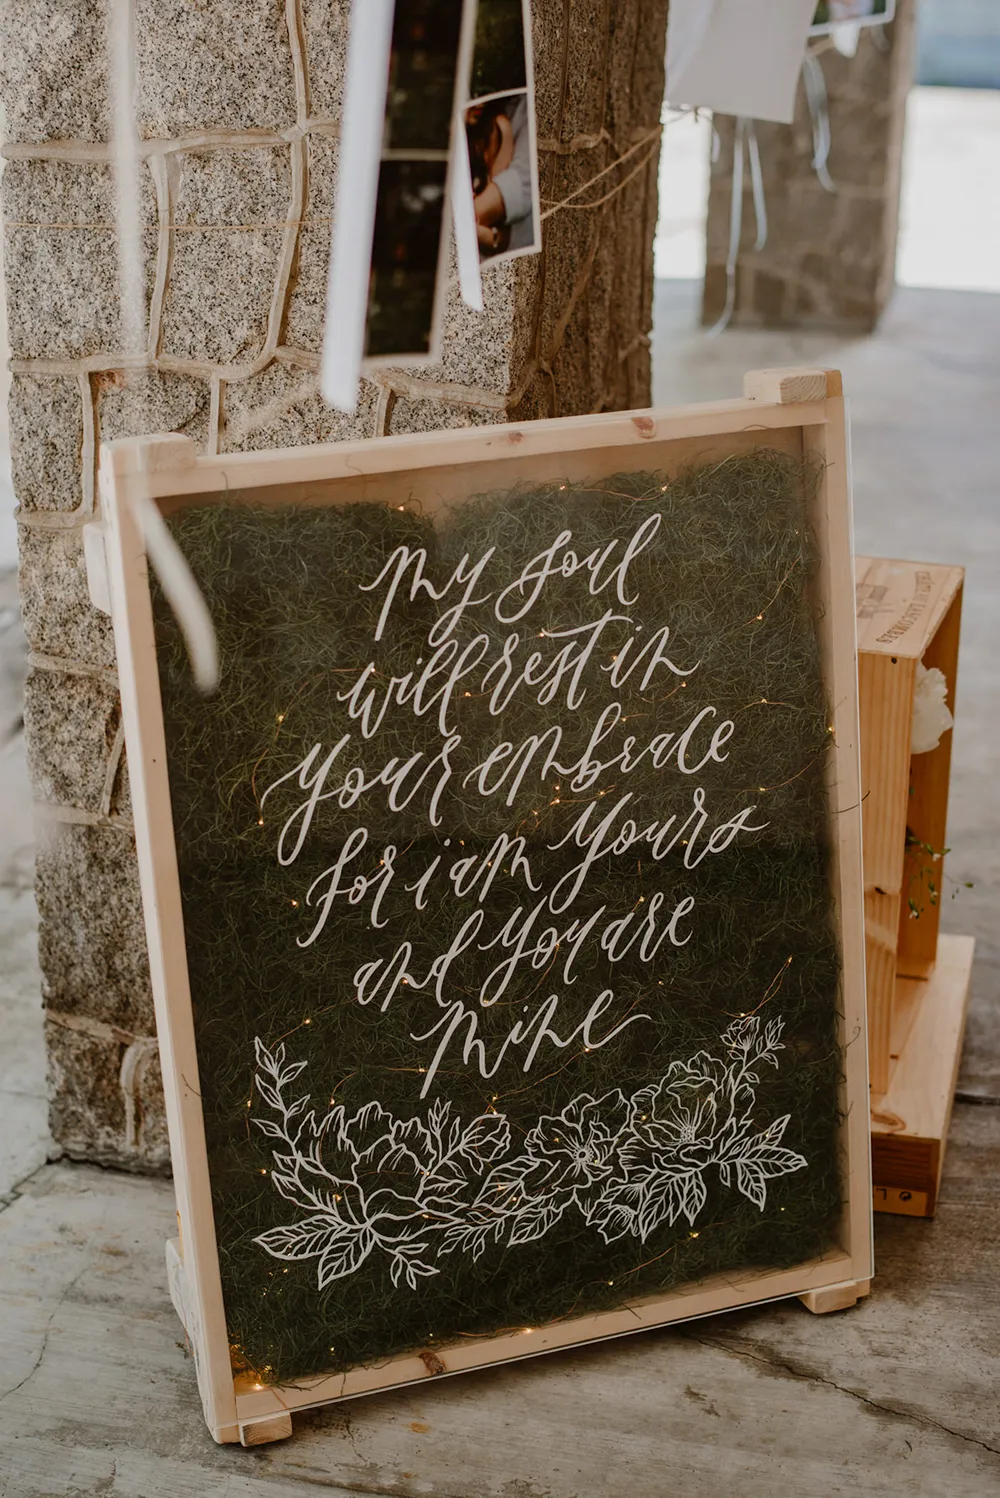 My soul
will rest in
your embrace
for i am yours
and you are
mine